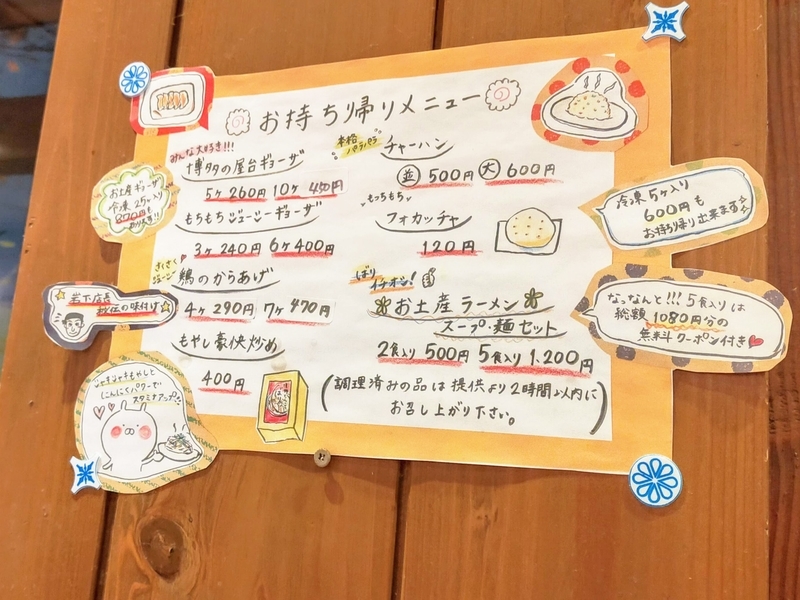 お持ち帰りメニュー
みんな大好き!!!
博多の屋台ギョーザ
5ヶ 260円 10ヶ 450円
もちもちジューシーギョーザ
3ヶ 240円 6ヶ 400円
鶏のからあげ
4ヶ 290円 7ヶ 470円
もやし豪快炒め
400円
本格
パラパラ
チャーハン
並 500円 大 600円
もっちもち
フォカッチャ
120円
ばり
イチオシ!
お土産ラーメン
スープ・麺セット
2食入り 500円 5食入り 1,200円
(調理済みの品は提供より2時間以内に
お召し上がり下さい。)
お土産ギョーザ
冷凍25ヶ入り
870円も
岩下店長
秘伝の味付け
シャキシャキもやしと
にんにくパワーで
スタミナアップ!
冷凍5ヶ入り
600円も
お持ち帰り出来ます
なっなんと!!!5食入りは
総額1080円分の
無料クーポン付き